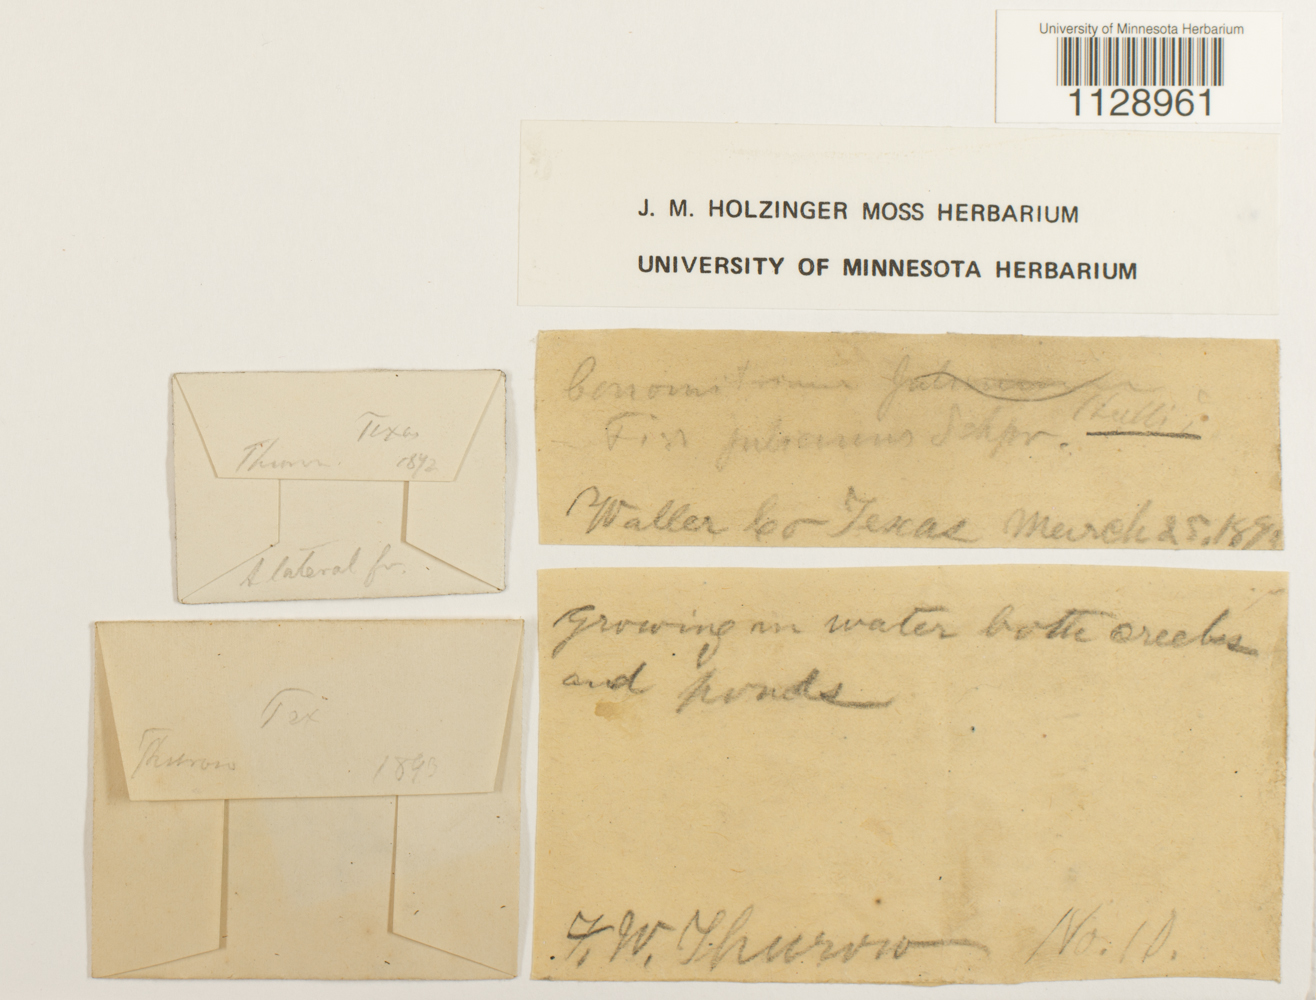 University of Minnesota Herbarium
1128961
J. M. HOLZINGER MOSS HERBARIUM
UNIVERSITY OF MINNESOTA HERBARIUM
Texas
Thurow. 1892
A lateral fr.
Conomitrium Julianum
Fiss julianus Schpr.
Waller Co Texas March 25, 189
Growing in water both creeks
and ponds
F. W. Thurow No. 10.
Tex
Thurow 1893